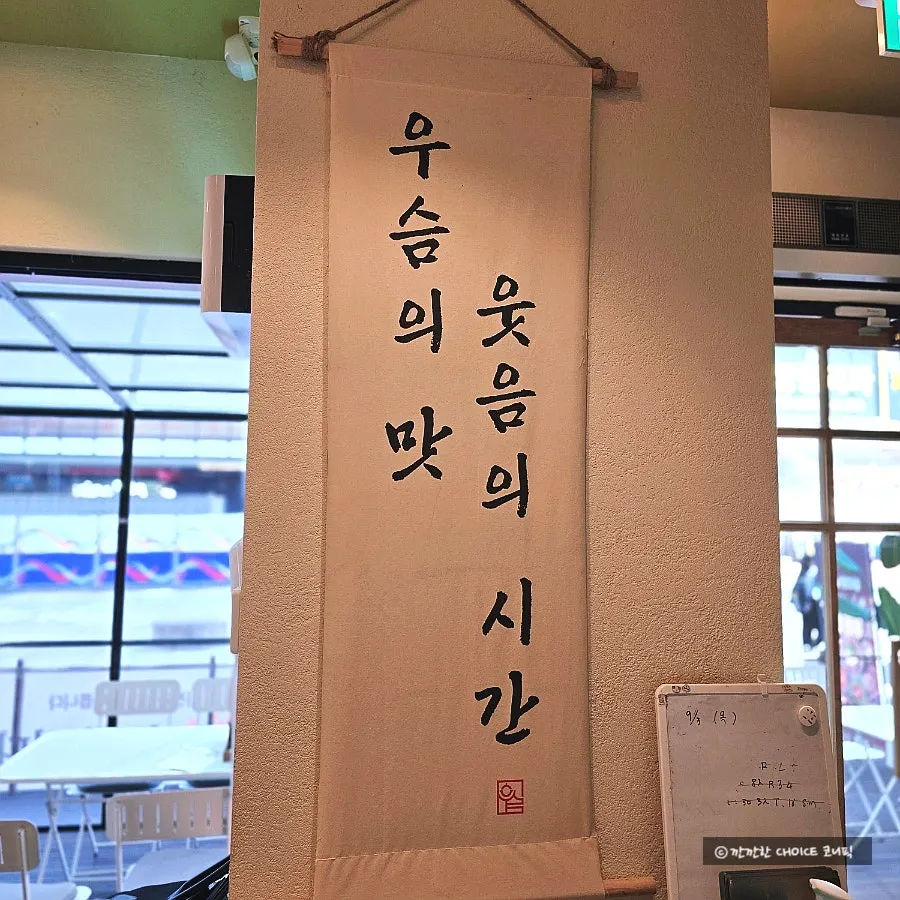 우슴의 맛
웃음의 시간
9/3 (목)
ⓒ깐깐한 CHOICE 코니픽